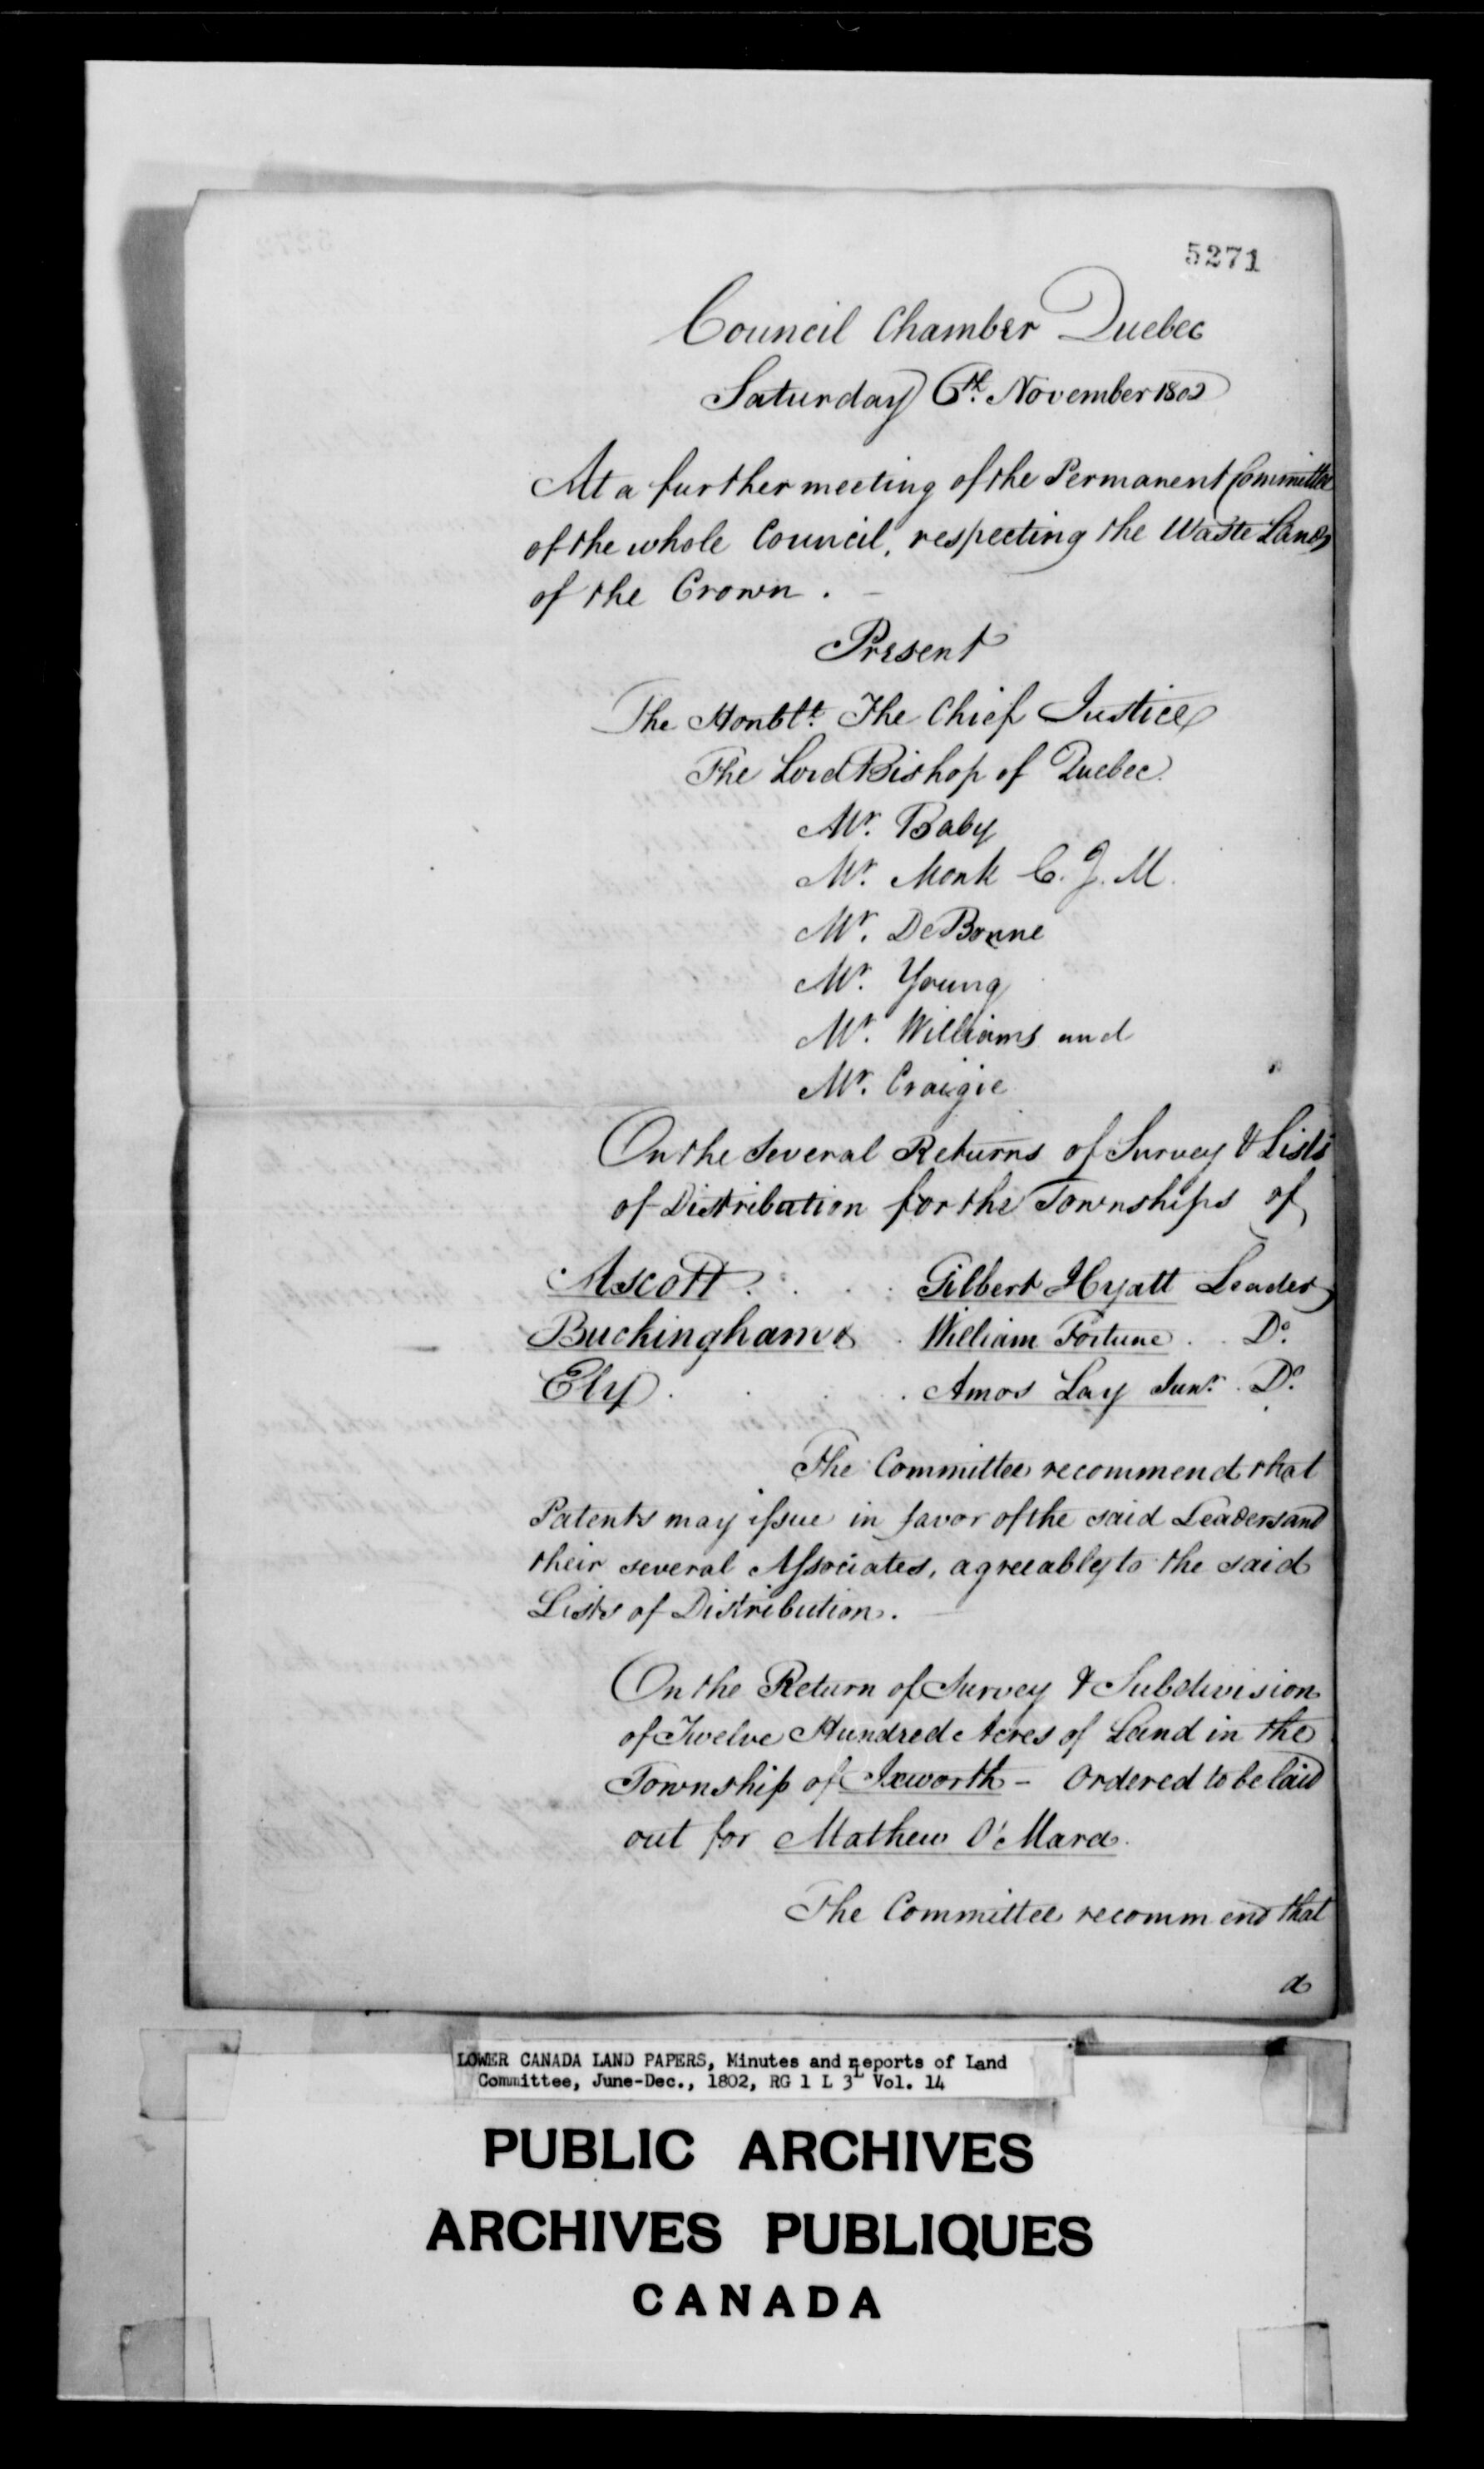 5271
Council Chamber Quebec
Saturday 6th. November 1802
At a further meeting of the Permanent Committee
of the whole Council, respecting the Waste Lands
of the Crown. —
Present
The Honble. The Chief Justice
The Lord Bishop of Quebec.
Mr. Baby
Mr. Monk C. J. M.
Mr. DeBonne
Mr. Young
Mr. Williams and
Mr. Craigie
On the Several Returns of Survey & Lists
of Distribution for the Townships of
Ascott . . . . Gilbert Hyatt Leader
Buckingham & . William Fortune . . Do.
Ely . . . . Amos Lay Junr. . Do.
The Committee recommend that
Patents may issue in favor of the said Leaders and
their several Associates, agreeably to the said
Lists of Distribution. —
On the Return of Survey & Subdivision
of Twelve Hundred Acres of Land in the
Township of Ixworth – Ordered to be laid
out for Mathew O'Mara.
The Committee recommend that
a
LOWER CANADA LAND PAPERS, Minutes and reports of Land
Committee, June-Dec., 1802, RG 1 L 3L Vol. 14
PUBLIC ARCHIVES
ARCHIVES PUBLIQUES
CANADA